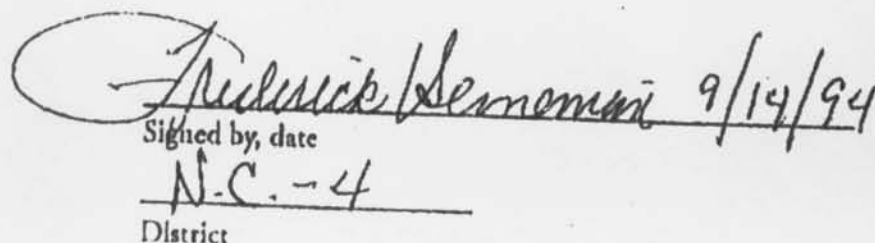 Frederick Heineman 9/14/94
Signed by, date
N.C. - 4
District